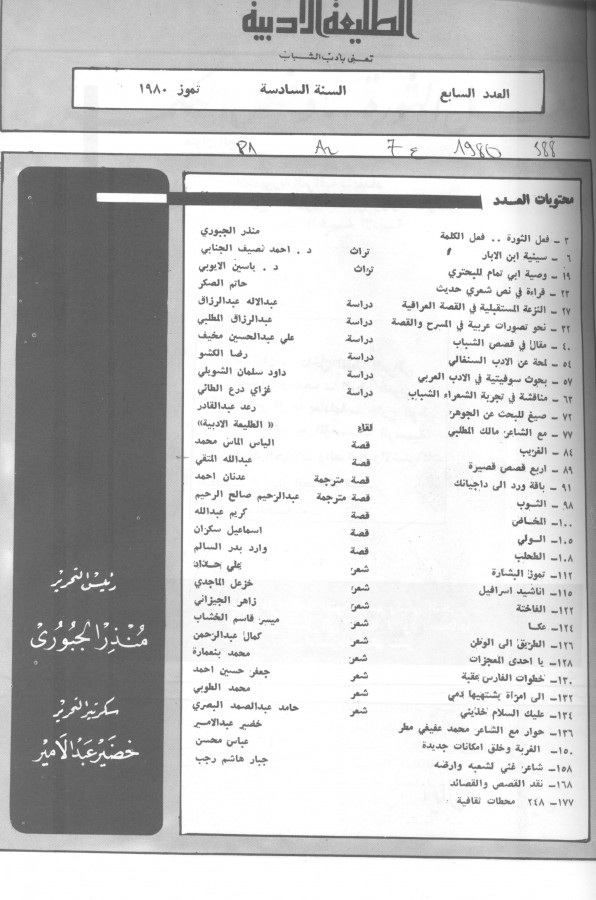 الطليعة الادبية
تعنى بأدب الشباب
العدد السابع    السنة السادسة    تموز ١٩٨٠
PA Ar 7 ع 1980 588
محتويات العدد
٢ ـ فعل الثورة .. فعل الكلمة    منذر الجبوري
٦ ـ سينية ابن الابار    تراث    د . احمد نصيف الجنابي
١٩ ـ وصية ابي تمام للبحتري    تراث    د . ياسين الايوبي
٢٣ ـ قراءة في نص شعري حديث    حاتم الصكر
٢٧ ـ النزعة المستقبلية في القصة العراقية    دراسة    عبدالاله عبدالرزاق
٣٢ ـ نحو تصورات عربية في المسرح والقصة    دراسة    عبدالرزاق المطلبي
٤٠ ـ مقال في قصص الشباب    دراسة    علي عبدالحسين مخيف
٥٤ ـ لمحة عن الادب السنغالي    دراسة    رضا الكشو
٥٧ ـ بحوث سوفيتية في الادب العربي    دراسة    داود سلمان الشويلي
٦٢ ـ مناقشة في تجربة الشعراء الشباب    دراسة    غزاي درع الطائي
٧٢ ـ صيغ للبحث عن الجوهر    رعد عبدالقادر
٧٧ ـ مع الشاعر مالك المطلبي    لقاء    « الطليعة الادبية»
٨٤ ـ الغريب    قصة    الياس الماس محمد
٨٩ ـ اربع قصص قصيرة    قصة    عبدالله المتقي
٩١ ـ باقة ورد الى داجيانك    قصة مترجمة    عدنان احمد
٩٨ ـ الثوب    قصة مترجمة    عبدالرحيم صالح الرحيم
١٠٠ـ المخاض    قصة    كريم عبدالله
١٠٥ـ الولي    قصة    اسماعيل سكران
١٠٨ـ الطحلب    قصة    وارد بدر السالم
١١٢ـ تموز البشارة    شعر    علي حداد
١١٥ـ اناشيد اسرافيل    شعر    خزعل الماجدي
١٢٢ـ الفاختة    شعر    زاهر الجيزاني
١٢٤ـ عكا    شعر    ميسر قاسم الخشاب
١٢٦ـ الطريق الى الوطن    شعر    كمال عبدالرحمن
١٢٨ـ يا احدى المعجزات    شعر    محمد بنعمارة
١٣٠ـ خطوات الفارس بعقبة    شعر    جعفر حسين احمد
١٣٢ـ الى امرأة يشتهيها دمي    شعر    محمد الطوبي
١٣٤ـ عليك السلام خذيني    شعر    حامد عبدالصمد البصري
١٣٦ـ حوار مع الشاعر محمد عفيفي مطر    خضير عبدالامير
١٥٠ـ الغربة وخلق امكانات جديدة    عباس محسن
١٥٨ـ شاعر غنى لشعبه وارضه    جبار هاشم رجب
١٦٨ـ نقد القصص والقصائد
١٧٧ـ ٢٤٨ محطات ثقافية
رئيس التحرير
منذر الجبوري
سكرتير التحرير
خضير عبد الامير